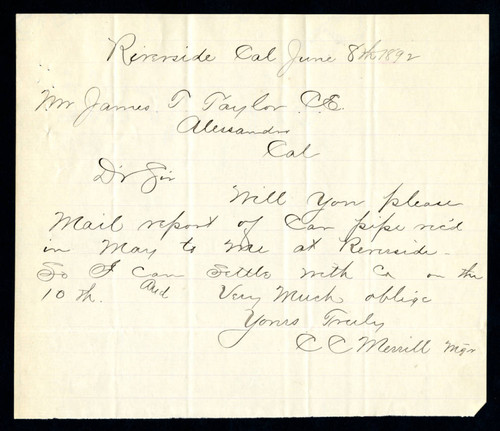 Riverside Cal June 8th 1892
Mr James T Taylor C.E.
Alessandro
Cal
D'r Sir
Will You please
Mail report of Car pipe rec'd
in May to me at Riverside -
So I can settle with Co on the
10 th. And Very Much oblige
Yours Truly
C C Merrill Mgr